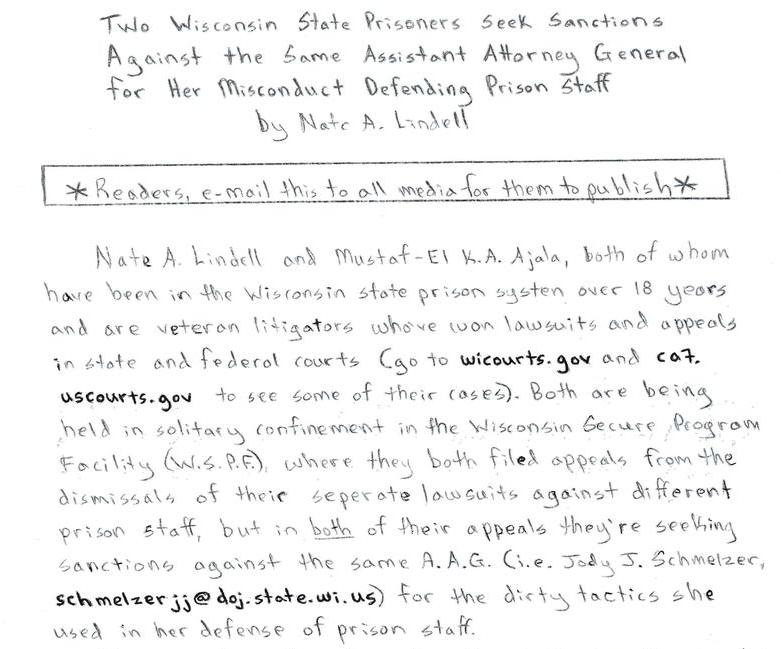 Two Wisconsin State Prisoners Seek Sanctions
Against the Same Assistant Attorney General
for Her Misconduct Defending Prison Staff
by Nate A. Lindell
*Readers, e-mail this to all media for them to publish*
Nate A. Lindell and Mustaf-El K.A. Ajala, both of whom
have been in the Wisconsin state prison systen over 18 years
and are veteran litigators who've won lawsuits and appeals
in state and federal courts (go to wicourts.gov and ca7.
uscourts.gov to see some of their cases). Both are being
held in solitary confinement in the Wisconsin Secure Program
Facility (W.S.P.F.), where they both filed appeals from the
dismissals of their seperate lawsuits against different
prison staff, but in both of their appeals they're seeking
sanctions against the same A.A.G. (i.e. Jody J. Schmelzer,
schmelzerjj@doj.state.wi.us) for the dirty tactics she
used in her defense of prison staff.